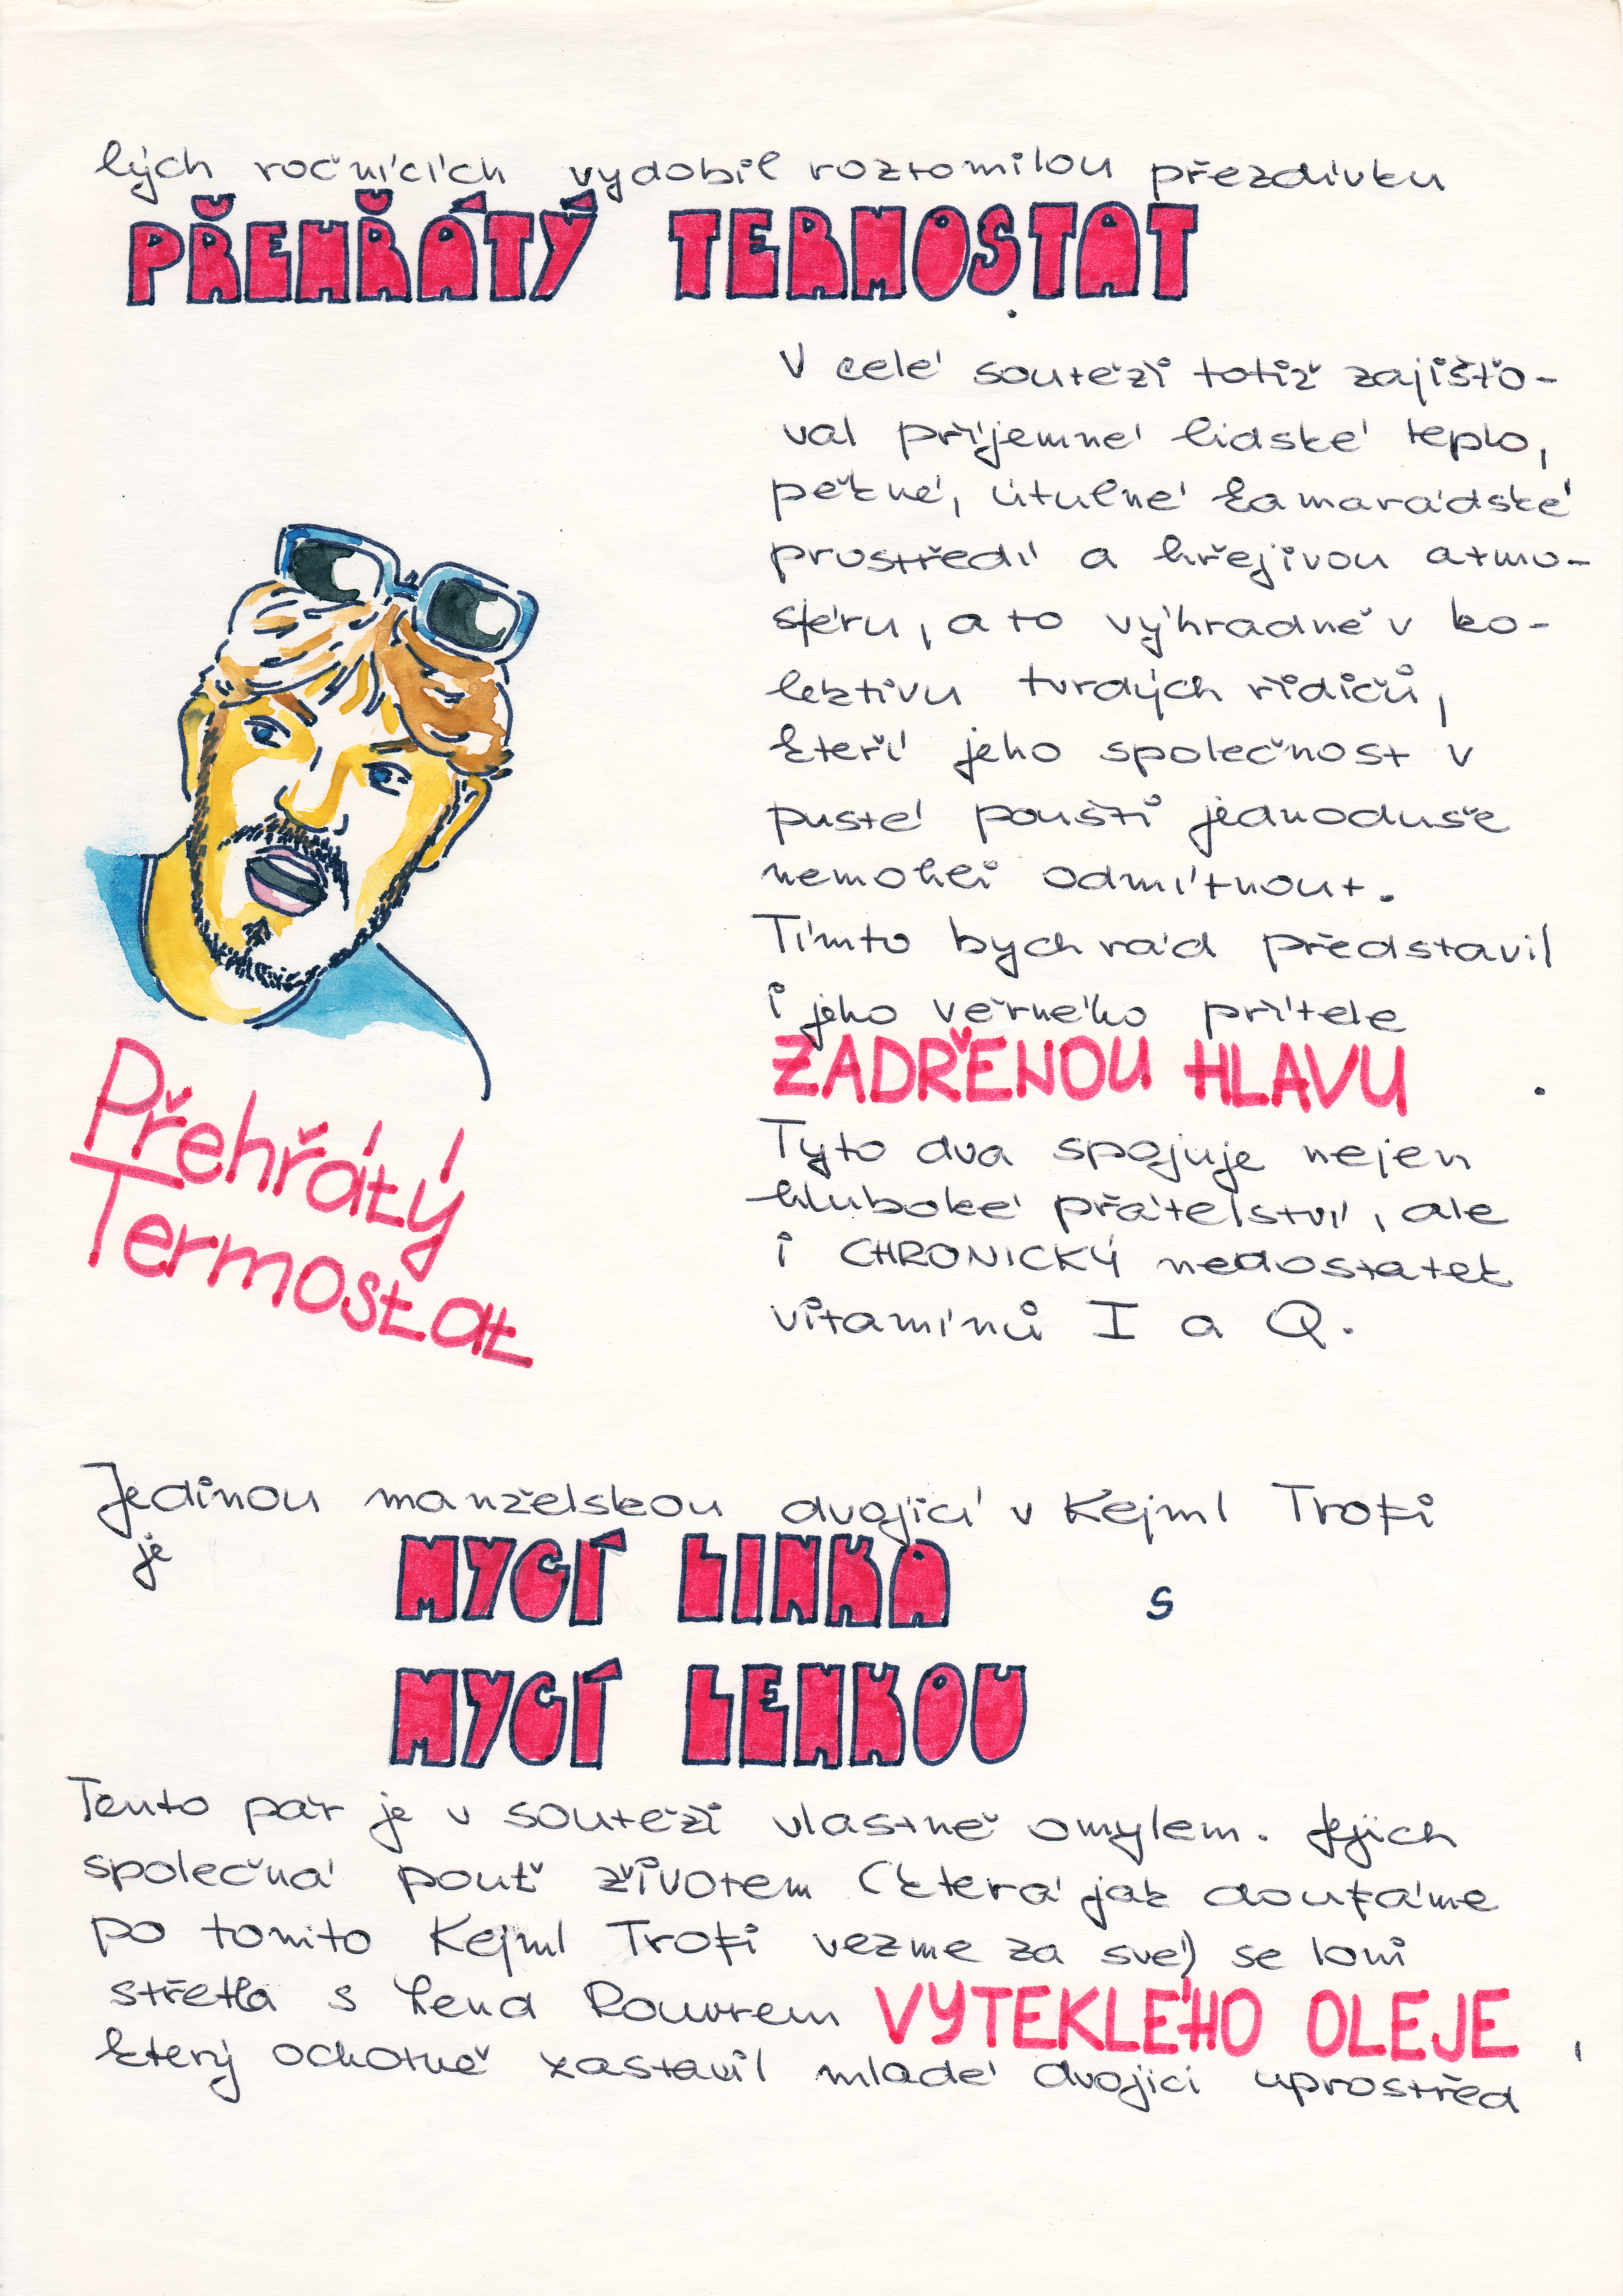 lých ročnících vydobil roztomilou přezdívku
PŘEHŘÁTÝ TERMOSTAT
.
V celé soutěži totiž zajišťo-
val příjemné lidské teplo,
pěkné, útulné kamarádské
prostředí a hřejivou atmo-
sféru, a to výhradně v ko-
lektivu tvrdých řidičů,
kteří jeho společnost v
pusté poušti jednoduše
nemohli odmítnout.
Tímto bych rád představil
i jeho věrného přítele
ZADŘENOU HLAVU .
Tyto dva spojuje nejen
hluboké přátelství, ale
i CHRONICKÝ nedostatek
vitamínů I a Q.
Přehřátý
Termostat
Jedinou manželskou dvojicí v Kejml Trofi
je MYCÍ LINKA s
MYCÍ LENKOU
Tento pár je v soutěži vlastně omylem. Jejich
společná pouť životem (která jak doufáme
po tomto Kejml Trofi vezme za své) se loni
střetla s Lend Rouvrem VYTEKLÉHO OLEJE ,
který ochotně zastavil mladé dvojici uprostřed